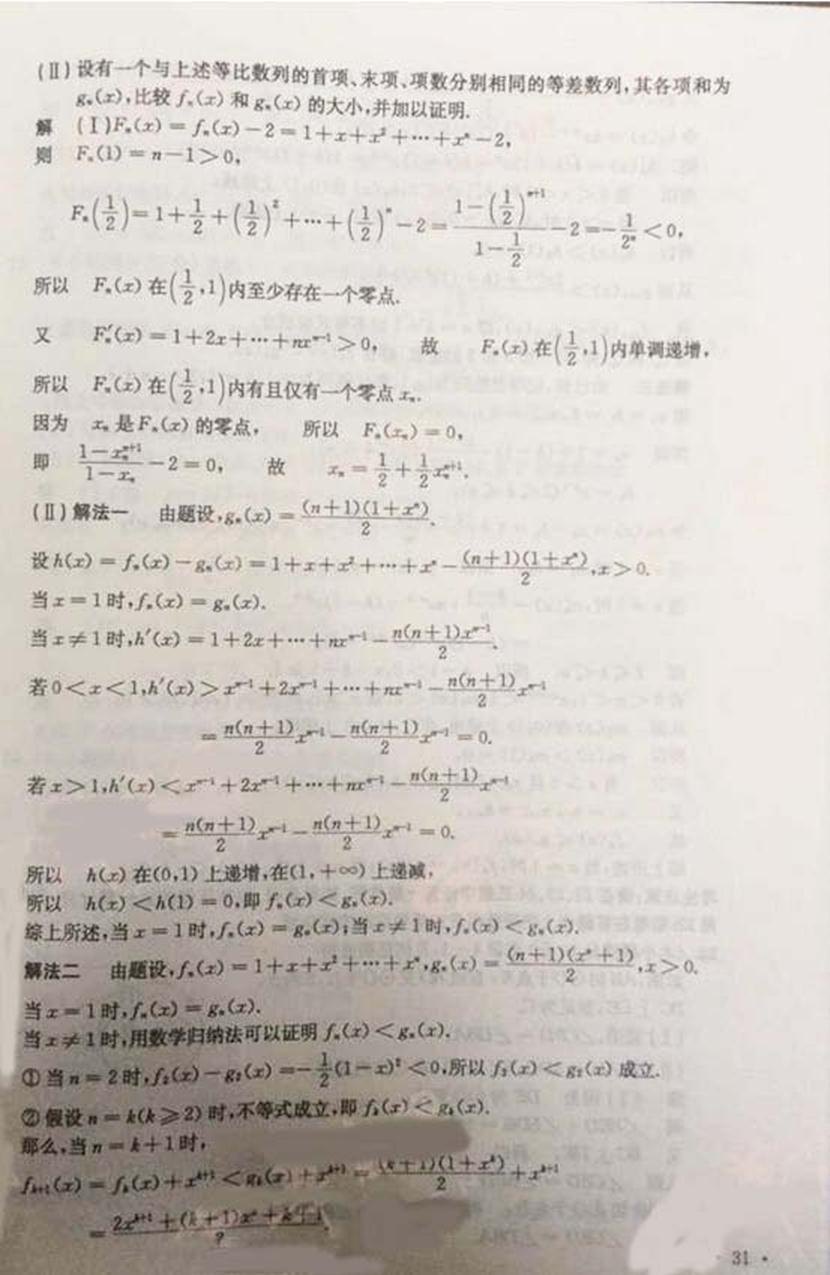 (Ⅱ)设有一个与上述等比数列的首项、末项、项数分别相同的等差数列,其各项和为
gₙ(x),比较 fₙ(x) 和 gₙ(x) 的大小,并加以证明.
解 (Ⅰ)Fₙ(x) = fₙ(x) − 2 = 1 + x + x² + ⋯ + xⁿ − 2,
则 Fₙ(1) = n − 1 > 0,
Fₙ(1/2) = 1 + 1/2 + (1/2)² + ⋯ + (1/2)ⁿ − 2 = (1 − (1/2)ⁿ⁺¹)/(1 − 1/2) − 2 = −1/2ⁿ < 0,
所以 Fₙ(x) 在(1/2,1)内至少存在一个零点.
又 Fₙ′(x) = 1 + 2x + ⋯ + nxⁿ⁻¹ > 0, 故 Fₙ(x) 在(1/2,1)内单调递增,
所以 Fₙ(x) 在(1/2,1)内有且仅有一个零点 xₙ.
因为 xₙ 是 Fₙ(x) 的零点, 所以 Fₙ(xₙ) = 0,
即 (1 − xₙⁿ⁺¹)/(1 − xₙ) − 2 = 0, 故 xₙ = 1/2 + 1/2 xₙⁿ⁺¹.
(Ⅱ)解法一 由题设,gₙ(x) = (n+1)(1+xⁿ)/2.
设 h(x) = fₙ(x) − gₙ(x) = 1 + x + x² + ⋯ + xⁿ − (n+1)(1+xⁿ)/2, x > 0.
当 x = 1 时,fₙ(x) = gₙ(x).
当 x ≠ 1 时,h′(x) = 1 + 2x + ⋯ + nxⁿ⁻¹ − n(n+1)xⁿ⁻¹/2.
若 0 < x < 1,h′(x) > xⁿ⁻¹ + 2xⁿ⁻¹ + ⋯ + nxⁿ⁻¹ − n(n+1)/2 xⁿ⁻¹
= n(n+1)/2 xⁿ⁻¹ − n(n+1)/2 xⁿ⁻¹ = 0.
若 x > 1,h′(x) < xⁿ⁻¹ + 2xⁿ⁻¹ + ⋯ + nxⁿ⁻¹ − n(n+1)/2 xⁿ⁻¹
= n(n+1)/2 xⁿ⁻¹ − n(n+1)/2 xⁿ⁻¹ = 0.
所以 h(x) 在(0,1) 上递增,在(1,+∞) 上递减,
所以 h(x) < h(1) = 0,即 fₙ(x) < gₙ(x).
综上所述,当 x = 1 时,fₙ(x) = gₙ(x);当 x ≠ 1 时,fₙ(x) < gₙ(x).
解法二 由题设,fₙ(x) = 1 + x + x² + ⋯ + xⁿ,gₙ(x) = (n+1)(xⁿ+1)/2, x > 0.
当 x = 1 时,fₙ(x) = gₙ(x).
当 x ≠ 1 时,用数学归纳法可以证明 fₙ(x) < gₙ(x).
①当 n = 2 时,f₂(x) − g₂(x) = −1/2(1−x)² < 0,所以 f₂(x) < g₂(x) 成立.
②假设 n = k(k ≥ 2) 时,不等式成立,即 fₖ(x) < gₖ(x).
那么,当 n = k + 1 时,
fₖ₊₁(x) = fₖ(x) + xᵏ⁺¹ < gₖ(x) + xᵏ⁺¹ = (k+1)(1+xᵏ)/2 + xᵏ⁺¹
= (2xᵏ⁺¹ + (k+1)xᵏ + k+1)/2.
· 31 ·